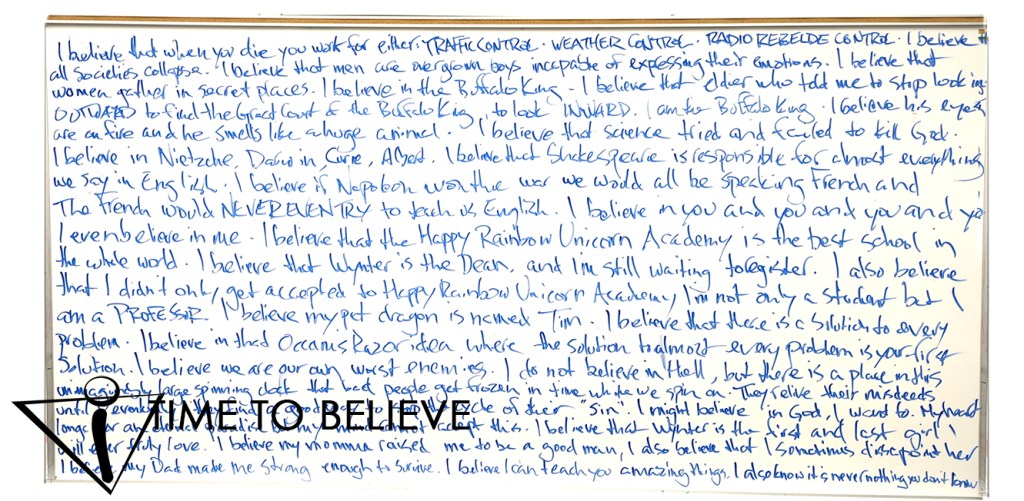 I believe that when you die you work for either: TRAFFIC CONTROL. WEATHER CONTROL. RADIO REBELDE CONTROL. I believe
all societies collapse. I believe that men are overgrown boys incapable of expessing their emotions. I believe that
women gather in secret places. I believe in the Buffalo King - I believe that elder who told me to stop looking
OUTWARD to find the Great Court of the Buffalo King, to look INWARD. I am the Buffalo King. I believe his eyes
are on fire and he smells like a huge animal. I believe that science tried and failed to kill God.
I believe in Nietzche, Darwin, Curie, Albert. I believe that Shakespeare is responsible for almost everything
we say in English. I believe if Napoleon won the war we would all be speaking French and
The French would NEVER EVEN TRY to teach us English. I believe in you and you and you and
I even believe in me. I believe that the Happy Rainbow Unicorn Academy is the best school in
the whole world. I believe that Wynter is the Dean, and I'm still waiting to register. I also believe
that I didn't only get accepted to Happy Rainbow Unicorn Academy I'm not only a student but I
am a PROFESSOR. I believe my pet dragon is named Tim. I believe that there is a solution to every
problem. I believe in that Occams Razor idea where the solution to almost every problem is your first
Solution. I believe we are our own worst enemies. I do not believe in Hell, but there is a place in this
unimaginably large spinning clock that bad people get frozen in time while we spin on. They relive their misdeeds
until of their "Sin". I might believe in God, I want to. My
this. I believe that Wynter is the first and last girl I
will ever truly love. I believe my momma raised me to be a good man, I also believe that I sometimes disappoint her
I believe my Dad made me strong enough to survive. I believe I can teach you amazing things. I also know it is never nothing you don't know
TIME TO BELIEVE